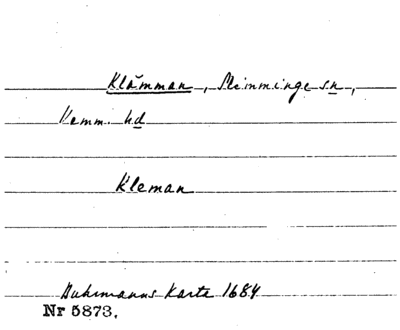 Klämman, Sleinminge sn,
Vemm. hd
Kleman
Buhrmanns Karta 1684
Nr 5873.